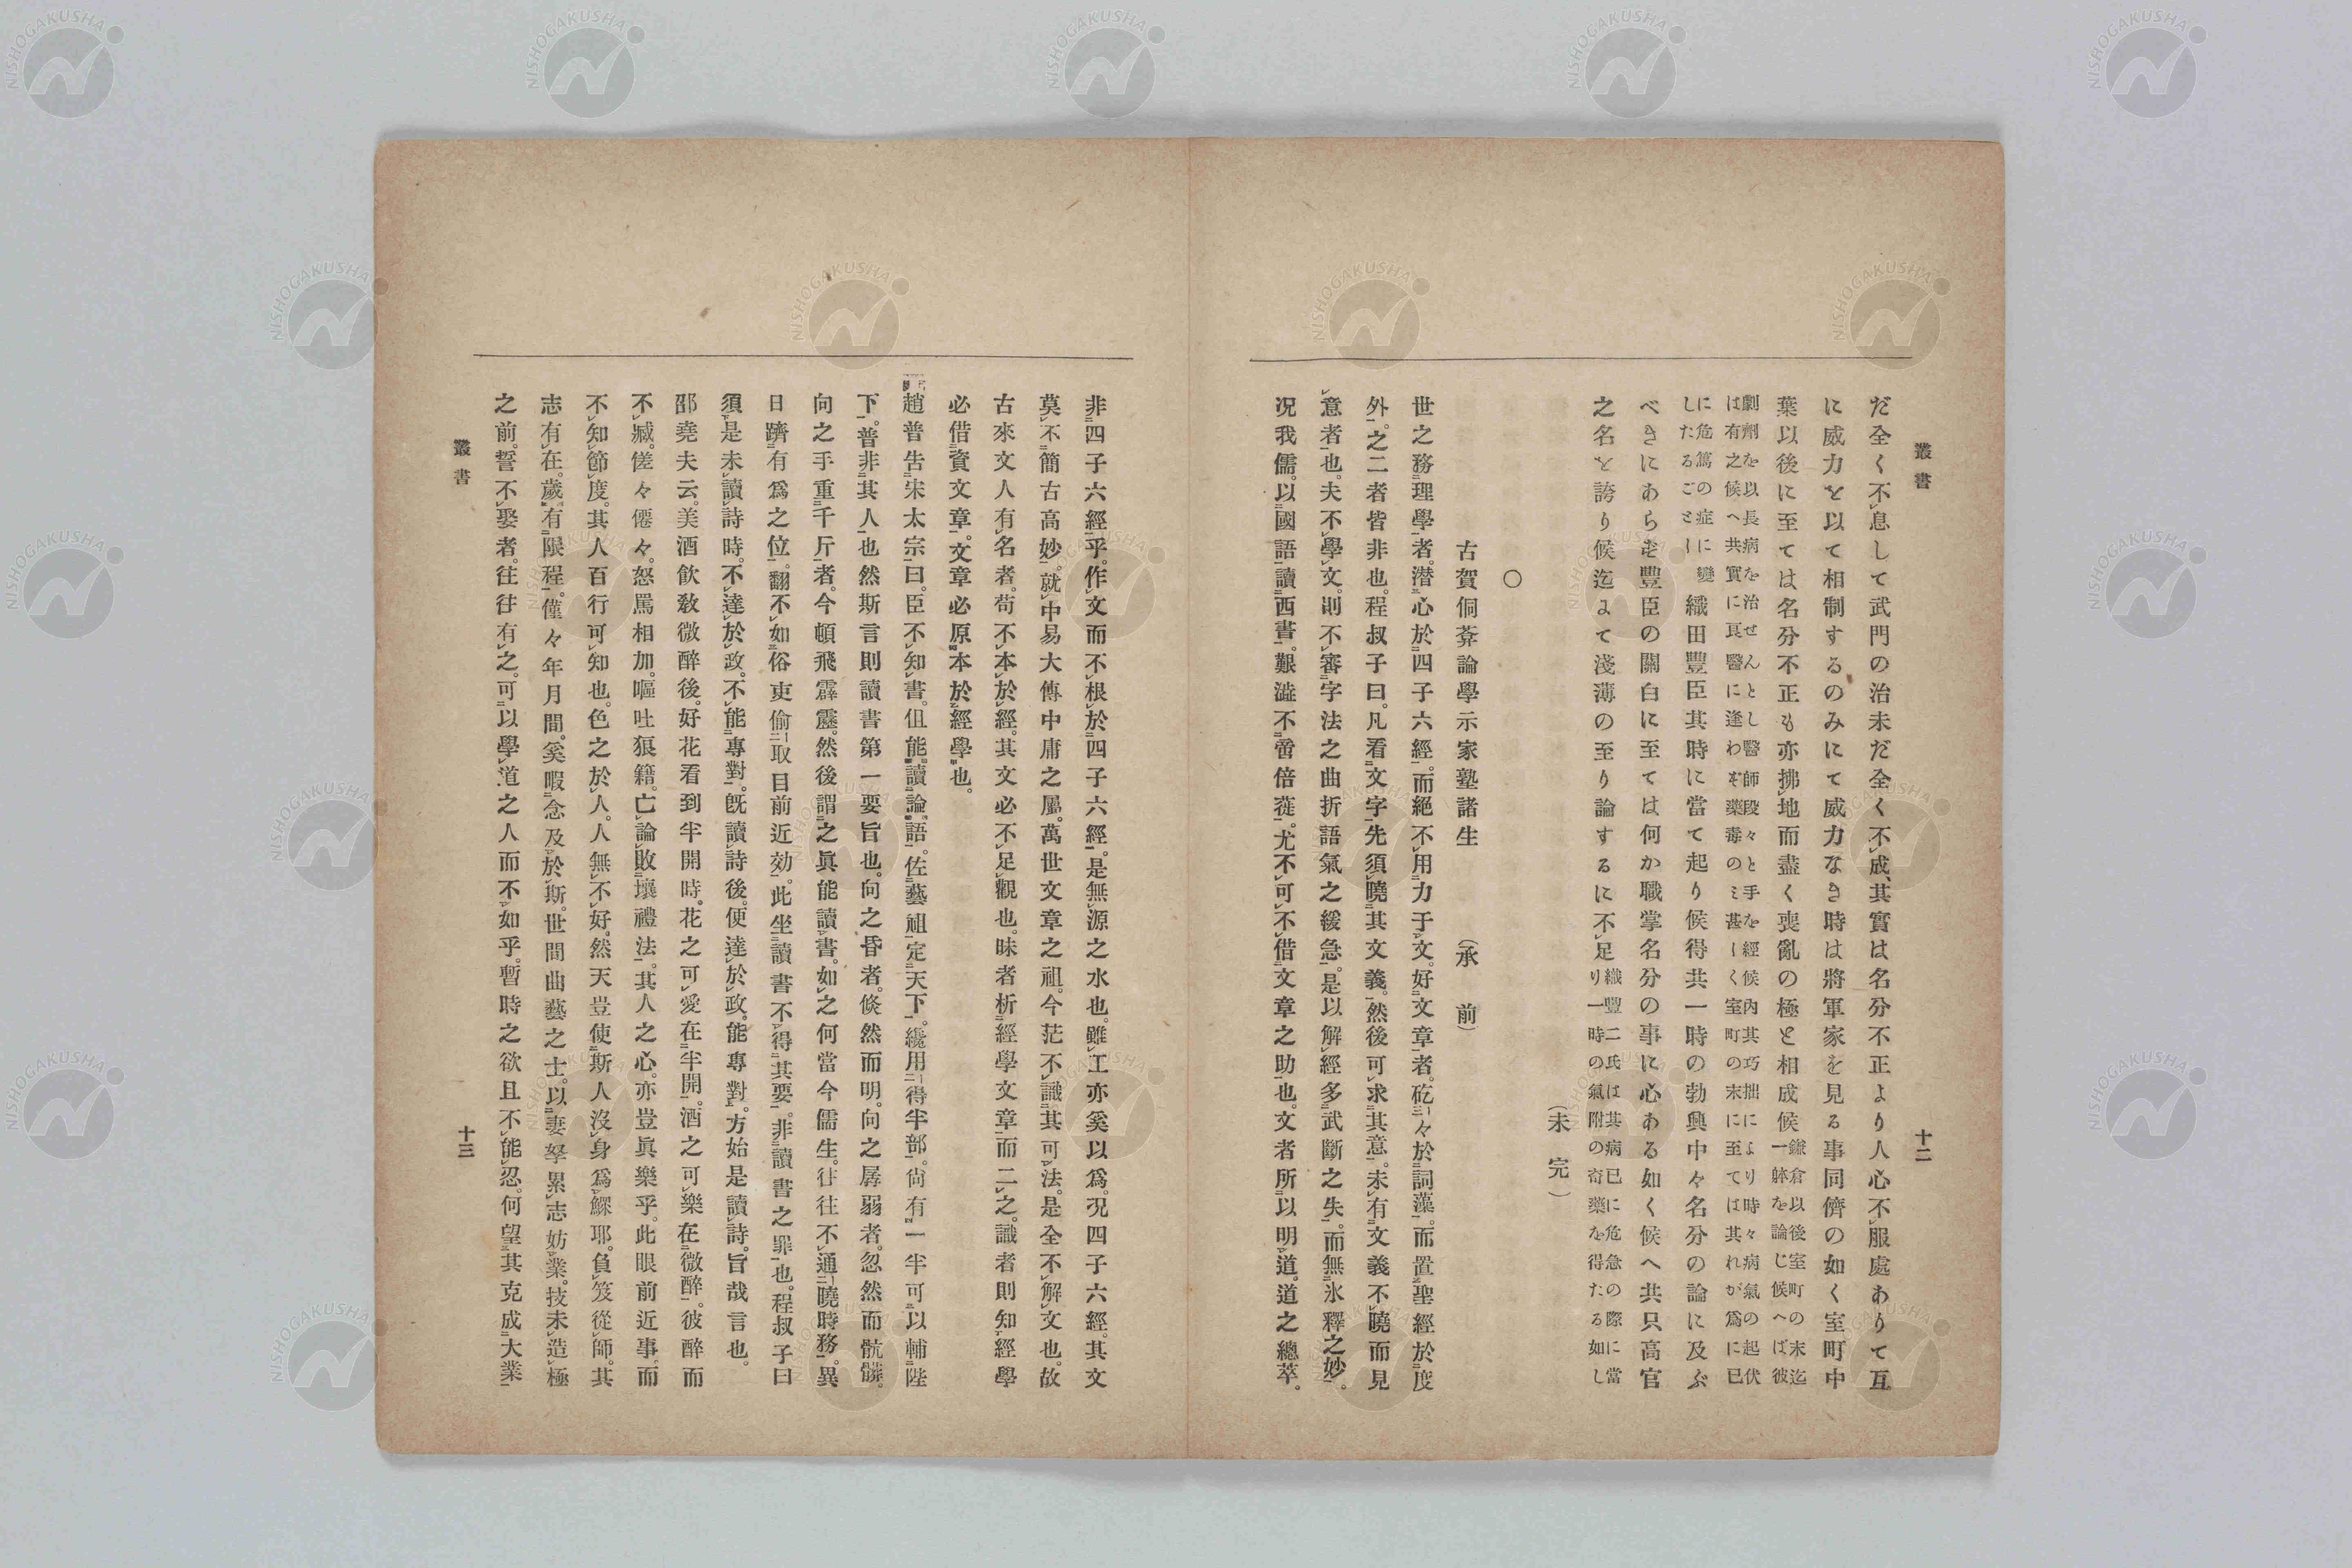 叢書
十二
だ全く不息して武門の治未だ全く不成、其實は名分不正より人心不服處ありて互
に威力を以て相制するのみにて威力なき時は將軍家を見る事同儕の如く室町中
葉以後に至ては名分不正も亦拂地而盡く喪亂の極と相成候鎌倉以後室町の末迄一躰を論じ候へば彼
劇劑を以長病を治せんとし醫師段々と手を經候內其巧拙により時々病氣の起伏
は有之候へ共實に良醫に逢わず藥毒のミ甚しく室町の末に至ては其れが爲に已
に危篤の症に變したるごとし織田豐臣其時に當て起り候得共一時の勃興中々名分の論に及ぶ
べきにあらず豐臣の關白に至ては何か職掌名分の事に心ある如く候へ共只高官
之名を誇り候迄よて淺薄の至り論するに不足織豐二氏は其病已に危急の際に當り一時の氣附の奇藥を得たる如し
(未完)
〇
古賀侗葊論學示家塾諸生 (承前)
世之務理學者。潛心於四子六經。而絕不用力于文。好文章者。矻々於詞藻。而置聖經於度
外。之二者皆非也。程叔子曰。凡看文字。先須曉其文義。然後可求其意。未有文義不曉而見
意者也。夫不學文。則不審字法之曲折語氣之緩急。是以解經多武斷之失。而無氷釋之妙。
况我儒。以國語讀西書。艱澁不啻倍蓰。尤不可不借文章之助也。文者所以明道。道之總萃。
非四子六經乎。作文而不根於四子六經。是無源之水也。雖工亦奚以爲。况四子六經。其文
莫不簡古高妙。就中易大傳中庸之屬。萬世文章之祖。今茫不識其可法。是全不解文也。故
古來文人有名者。苟不本於經。其文必不足觀也。昧者析經學文章而二之。識者則知經學
必借資文章。文章必原本於經學也。
趙普告宋太宗曰。臣不知書。但能讀論語。佐藝祖定天下。纔用得半部。尙有一半可以輔陛
下。普非其人也然斯言則讀書第一要旨也。向之昏者。倐然而明。向之孱弱者。忽然而骯髒。
向之手重千斤者。今頓飛霹靂。然後謂之眞能讀書。如之何當今儒生。往往不通曉時務。異
日躋有爲之位。翻不如俗吏偷取目前近効。此坐讀書不得其要。非讀書之罪也。程叔子曰
須是未讀詩時。不達於政。不能專對。旣讀詩後。便達於政。能專對。方始是讀詩。旨哉言也。
邵堯夫云。美酒飮敎微醉後。好花看到半開時。花之可愛在半開。酒之可樂在微醉。彼醉而
不臧。傞々僊々。怒罵相加。嘔吐狼籍。亡論敗壞禮法。其人之心。亦豈眞樂乎。此眼前近事。而
不知節度。其人百行可知也。色之於人。人無不好。然天豈使斯人沒身爲鰥耶。負笈從師。其
志有在。歲有限程。僅々年月間。奚暇念及於斯。世間曲藝之士。以妻孥累志妨業。技未造極
之前。誓不娶者。往往有之。可以學道之人而不如乎。暫時之欲且不能忍。何望其克成大業
叢書
十三